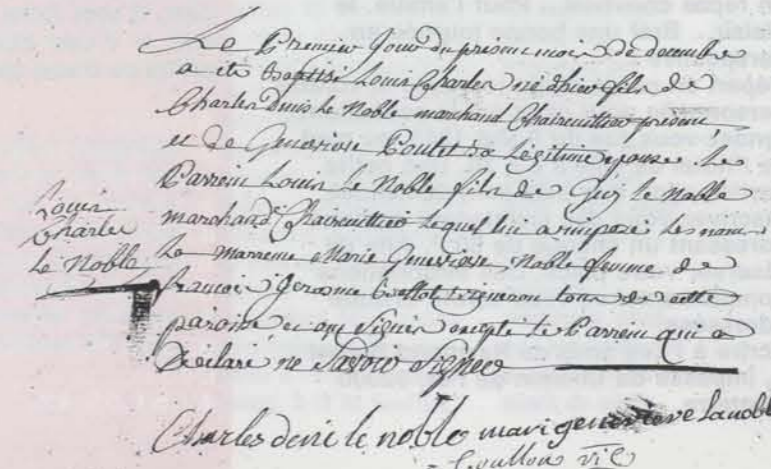 Le Premier Jour du present mois de decembre
a ete baptisé Louis Charles né d'hier fils de
Charles Denis le Noble marchand Chaircuittier present,
et de Genevieve Poulet sa Légitime epouse. Le
Parrein Louis le Noble fils de Guy le Noble
marchand Chaircuittier lequel lui a imposé les noms
La marreine Marie Genevieve Noble femme de
francois Jerosme vigneron tous de cette
paroisse et ont Signés excepté le Parrein qui a
Déclaré ne Savoir Signer
Louis
Charles
Le Noble
Charles denis le noble marigenevieve lanoble